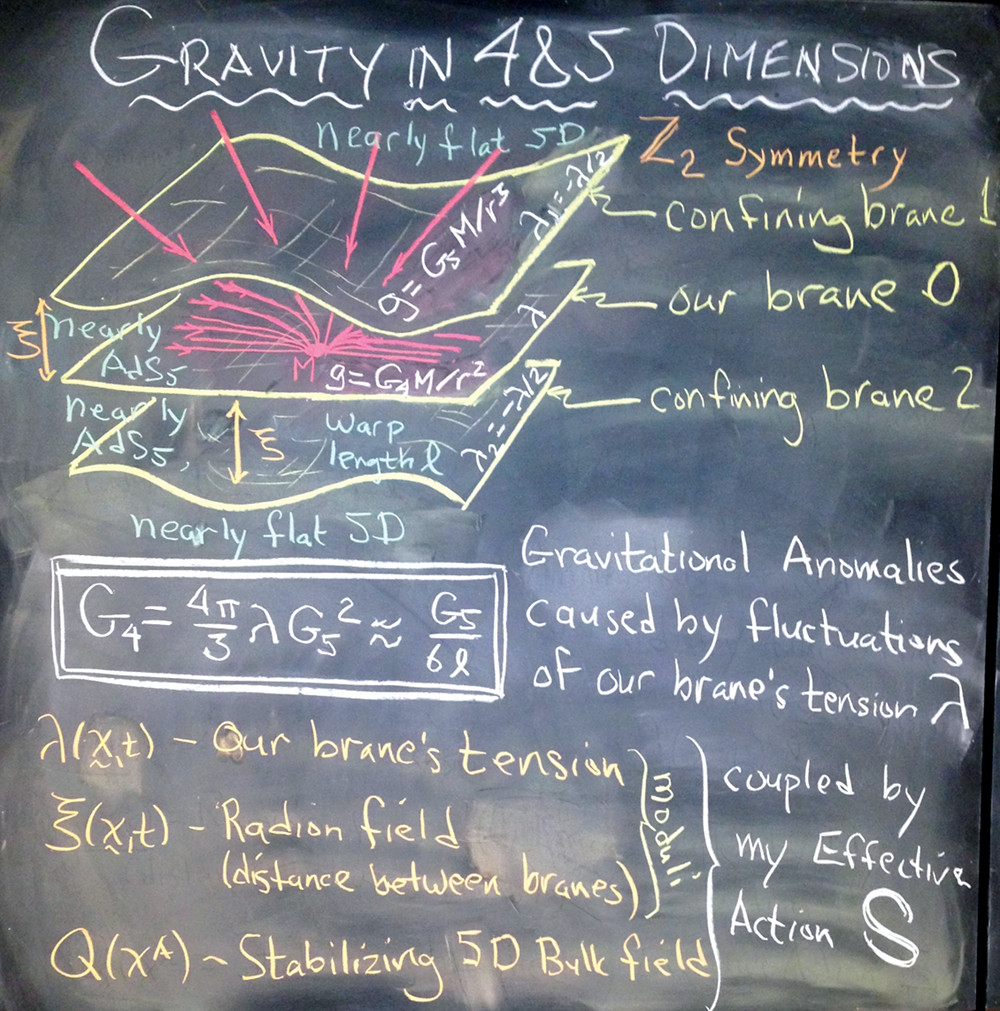 GRAVITY IN 4&5 DIMENSIONS
nearly flat 5D
Z₂ Symmetry
confining brane 1
λ₁=-λ/2
g=G₅M/r³
our brane 0
λ
ξ
nearly
AdS₅
M
g=G₄M/r²
confining brane 2
λ₂=-λ/2
nearly
AdS₅,
ξ
warp
length l
nearly flat 5D
G₄= 4π/3 λ G₅² ≈ G₅/6l
Gravitational Anomalies
caused by fluctuations
of our brane's tension λ
λ(x,t) - Our brane's tension
ξ(x,t) - Radion field
(distance between branes)
moduli
Q(xᴬ) ~ Stabilizing 5D Bulk field
coupled by
my Effective
Action S